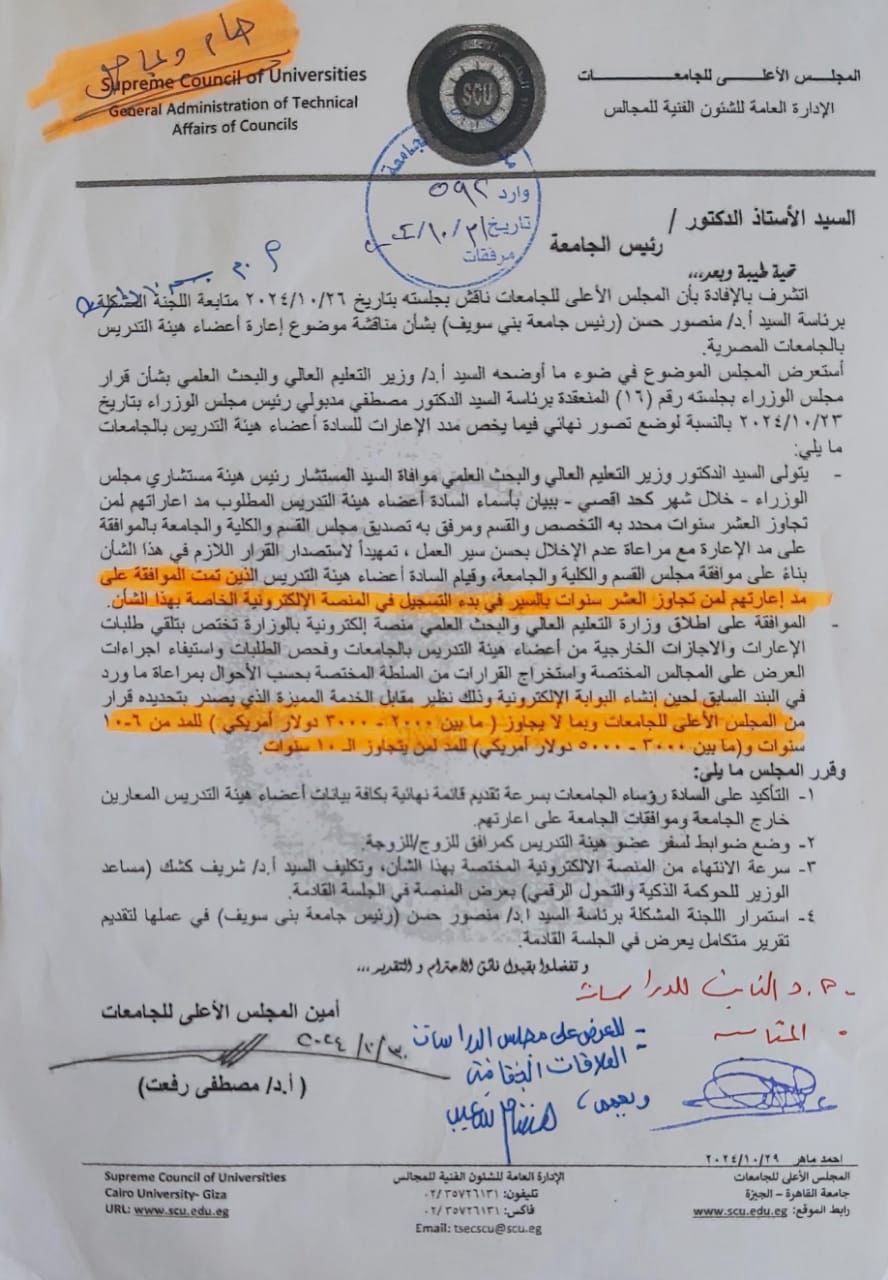 هام وعاجل
Supreme Council of Universities
General Administration of Technical
Affairs of Councils
SCU
المجلس الأعلى للجامعات
الإدارة العامة للشئون الفنية للمجالس
وارد ٥٩٢
تاريخ
مرفقات
السيد الأستاذ الدكتور /
رئيس الجامعة
تحية طيبة وبعد،،،
اتشرف بالإفادة بأن المجلس الأعلى للجامعات ناقش بجلسته بتاريخ ٢٠٢٤/١٠/٢٦ متابعة اللجنة المشكلة
برئاسة السيد أ.د/ منصور حسن (رئيس جامعة بني سويف) بشأن مناقشة موضوع إعارة أعضاء هيئة التدريس
بالجامعات المصرية.
أستعرض المجلس الموضوع في ضوء ما أوضحه السيد أ.د/ وزير التعليم العالي والبحث العلمي بشأن قرار
مجلس الوزراء بجلسته رقم (١٦) المنعقدة برئاسة السيد الدكتور مصطفي مدبولي رئيس مجلس الوزراء بتاريخ
٢٠٢٤/١٠/٢٣ بالنسبة لوضع تصور نهائي فيما يخص مدد الإعارات للسادة أعضاء هيئة التدريس بالجامعات
ما يلي:
- يتولى السيد الدكتور وزير التعليم العالي والبحث العلمي موافاة السيد المستشار رئيس هيئة مستشاري مجلس
الوزراء - خلال شهر كحد اقصي - ببيان بأسماء السادة أعضاء هيئة التدريس المطلوب مد اعاراتهم لمن
تجاوز العشر سنوات محدد به التخصص والقسم ومرفق به تصديق مجلس القسم والكلية والجامعة بالموافقة
على مد الإعارة مع مراعاة عدم الإخلال بحسن سير العمل ، تمهيداً لاستصدار القرار اللازم في هذا الشأن
بناءً على موافقة مجلس القسم والكلية والجامعة، وقيام السادة أعضاء هيئة التدريس الذين تمت الموافقة على
مد إعارتهم لمن تجاوز العشر سنوات بالسير في بدء التسجيل في المنصة الإلكترونية الخاصة بهذا الشأن.
- الموافقة على اطلاق وزارة التعليم العالي والبحث العلمي منصة إلكترونية بالوزارة تختص بتلقي طلبات
الإعارات والاجازات الخارجية من أعضاء هيئة التدريس بالجامعات وفحص الطلبات واستيفاء اجراءات
العرض على المجالس المختصة واستخراج القرارات من السلطة المختصة بحسب الأحوال بمراعاة ما ورد
في البند السابق لحين إنشاء البوابة الإلكترونية وذلك نظير مقابل الخدمة المميزة الذي يصدر بتحديده قرار
من المجلس الأعلى للجامعات وبما لا يجاوز ( ما بين ٢٠٠٠ - ٣٠٠٠ دولار أمريكي ) للمد من ٦-١٠
سنوات و(ما بين ٣٠٠٠ - ٥٠٠٠ دولار أمريكي) للمد لمن يتجاوز الـ ١٠ سنوات.
وقرر المجلس ما يلى:
١- التأكيد على السادة رؤساء الجامعات بسرعة تقديم قائمة نهائية بكافة بيانات أعضاء هيئة التدريس المعارين
خارج الجامعة وموافقات الجامعة على اعارتهم.
٢- وضع ضوابط لسفر عضو هيئة التدريس كمرافق للزوج/للزوجة.
٣- سرعة الانتهاء من المنصة الالكترونية المختصة بهذا الشأن، وتكليف السيد أ.د/ شريف كشك (مساعد
الوزير للحوكمة الذكية والتحول الرقمي) بعرض المنصة في الجلسة القادمة.
٤- استمرار اللجنة المشكلة برئاسة السيد ا.د/ منصور حسن (رئيس جامعة بنى سويف) في عملها لتقديم
تقرير متكامل يعرض في الجلسة القادمة.
وتفضلوا بقبول فائق الاحترام و التقدير ،،،
أ.د النائب للدراسات
أمين المجلس الأعلى للجامعات
٢٠٢٤/١٠/٣٠
(أ.د/ مصطفى رفعت)
- للعرض على مجلس الدراسات
العلاقات الثقافية
احمد ماهر ٢٠٢٤/١٠/٢٩
Supreme Council of Universities
Cairo University- Giza
URL: www.scu.edu.eg
الإدارة العامة للشئون الفنية للمجالس
تليفون: ٠٢/٣٥٧٢٦١٣١
فاكس: ٠٢/٣٥٧٢٦١٣١
Email: tsecscu@scu.eg
المجلس الأعلى للجامعات
جامعة القاهرة - الجيزة
رابط الموقع: www.scu.edu.eg